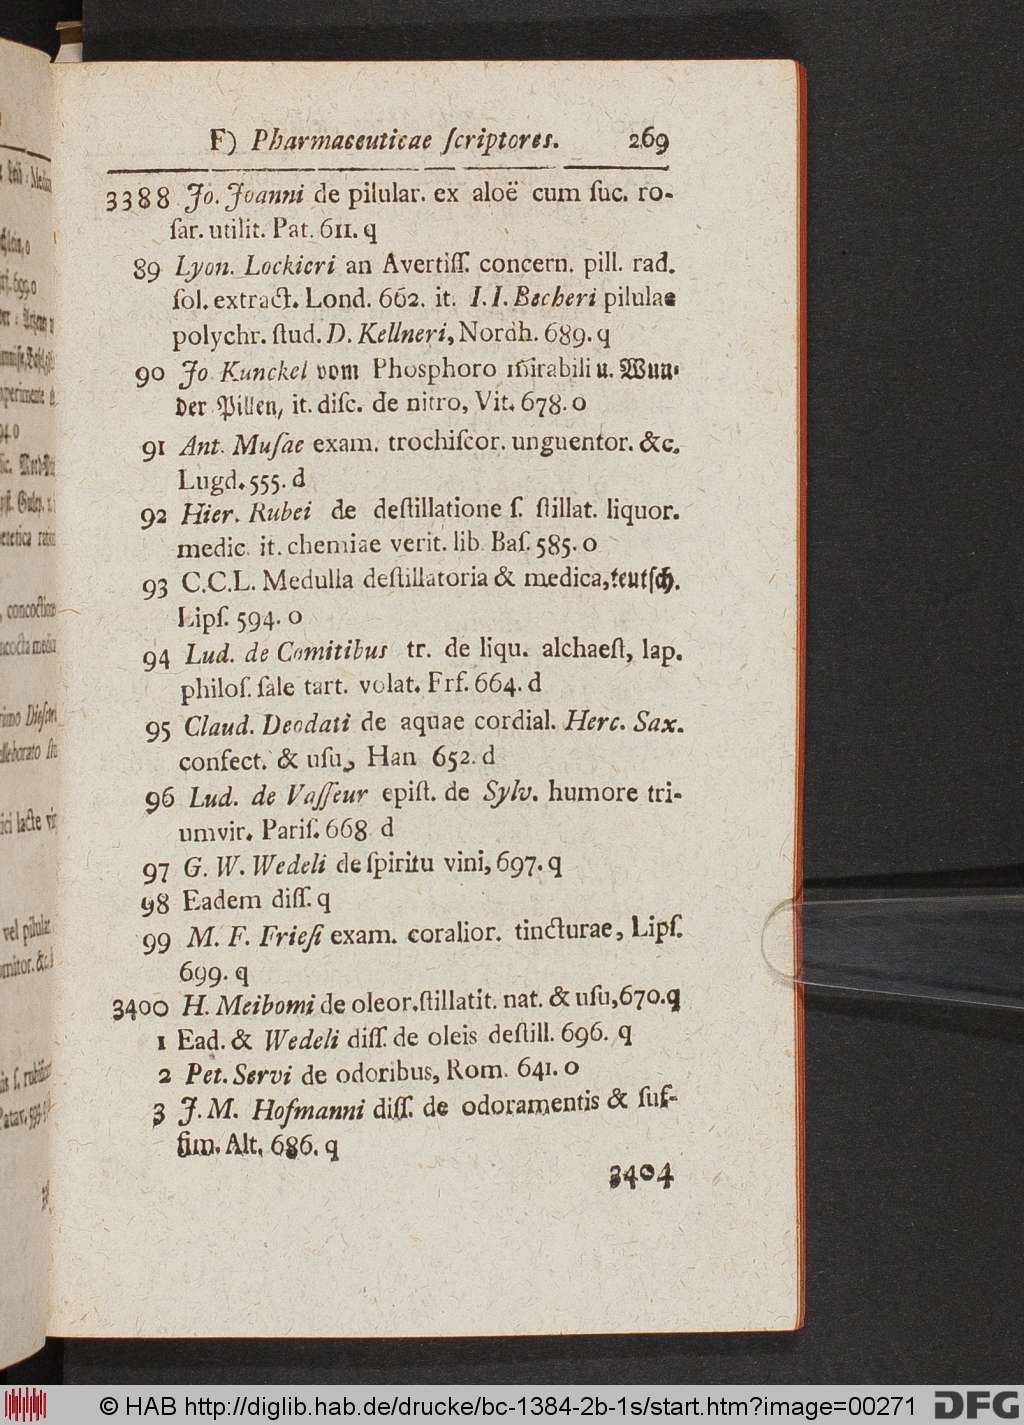 F) Pharmaceuticae ſcriptores. 269
3388 Jo. Joanni de pilular. ex aloë cum ſuc. ro-
ſar. utilit. Pat. 611. q
89 Lyon. Lockieri an Avertiſſ. concern. pill. rad.
ſol. extract. Lond. 662. it. I. I. Becheri pilulae
polychr. ſtud. D. Kellneri, Nordh. 689. q
90 Jo Kunckel vom Phosphoro mirabili u. Wun-
der Pillen, it. diſc. de nitro, Vit. 678. o
91 Ant. Muſae exam. trochiſcor. unguentor. &c.
Lugd. 555. d
92 Hier. Rubei de deſtillatione ſ. ſtillat. liquor.
medic. it. chemiae verit. lib. Baſ. 585. o
93 C.C.L. Medulla deſtillatoria & medica, teutſch.
Lipſ. 594. o
94 Lud. de Comitibus tr. de liqu. alchaeſt, lap.
philoſ. ſale tart. volat. Frf. 664. d
95 Claud. Deodati de aquae cordial. Herc. Sax.
confect. & uſu, Han 652. d
96 Lud. de Vaſſeur epiſt. de Sylv. humore tri-
umvir. Pariſ. 668 d
97 G. W. Wedeli de ſpiritu vini, 697. q
98 Eadem diſſ. q
99 M. F. Frieſi exam. coralior. tincturae, Lipſ.
699. q
3400 H. Meibomi de oleor. ſtillatit. nat. & uſu, 670. q
1 Ead. & Wedeli diſſ. de oleis deſtill. 696. q
2 Pet. Servi de odoribus, Rom. 641. o
3 J. M. Hofmanni diſſ. de odoramentis & ſuf-
fim. Alt. 686. q
3404
© HAB http://diglib.hab.de/drucke/bc-1384-2b-1s/start.htm?image=00271 DFG